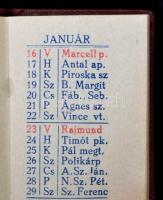 JANUÁR
16 V Marcell p.
17 H Antal ap.
18 K Piroska sz
19 Sz B. Margit
20 Cs Fáb., Seb.
21 P Ágnes sz.
22 Sz Vince vt.
23 V Rajmund
24 H Timót pk.
25 K Pál megt.
26 Sz Polikárp
27 Cs A.Sz. Ján.
28 P N.Sz. Pét.
29 Sz Sz. Ferenc